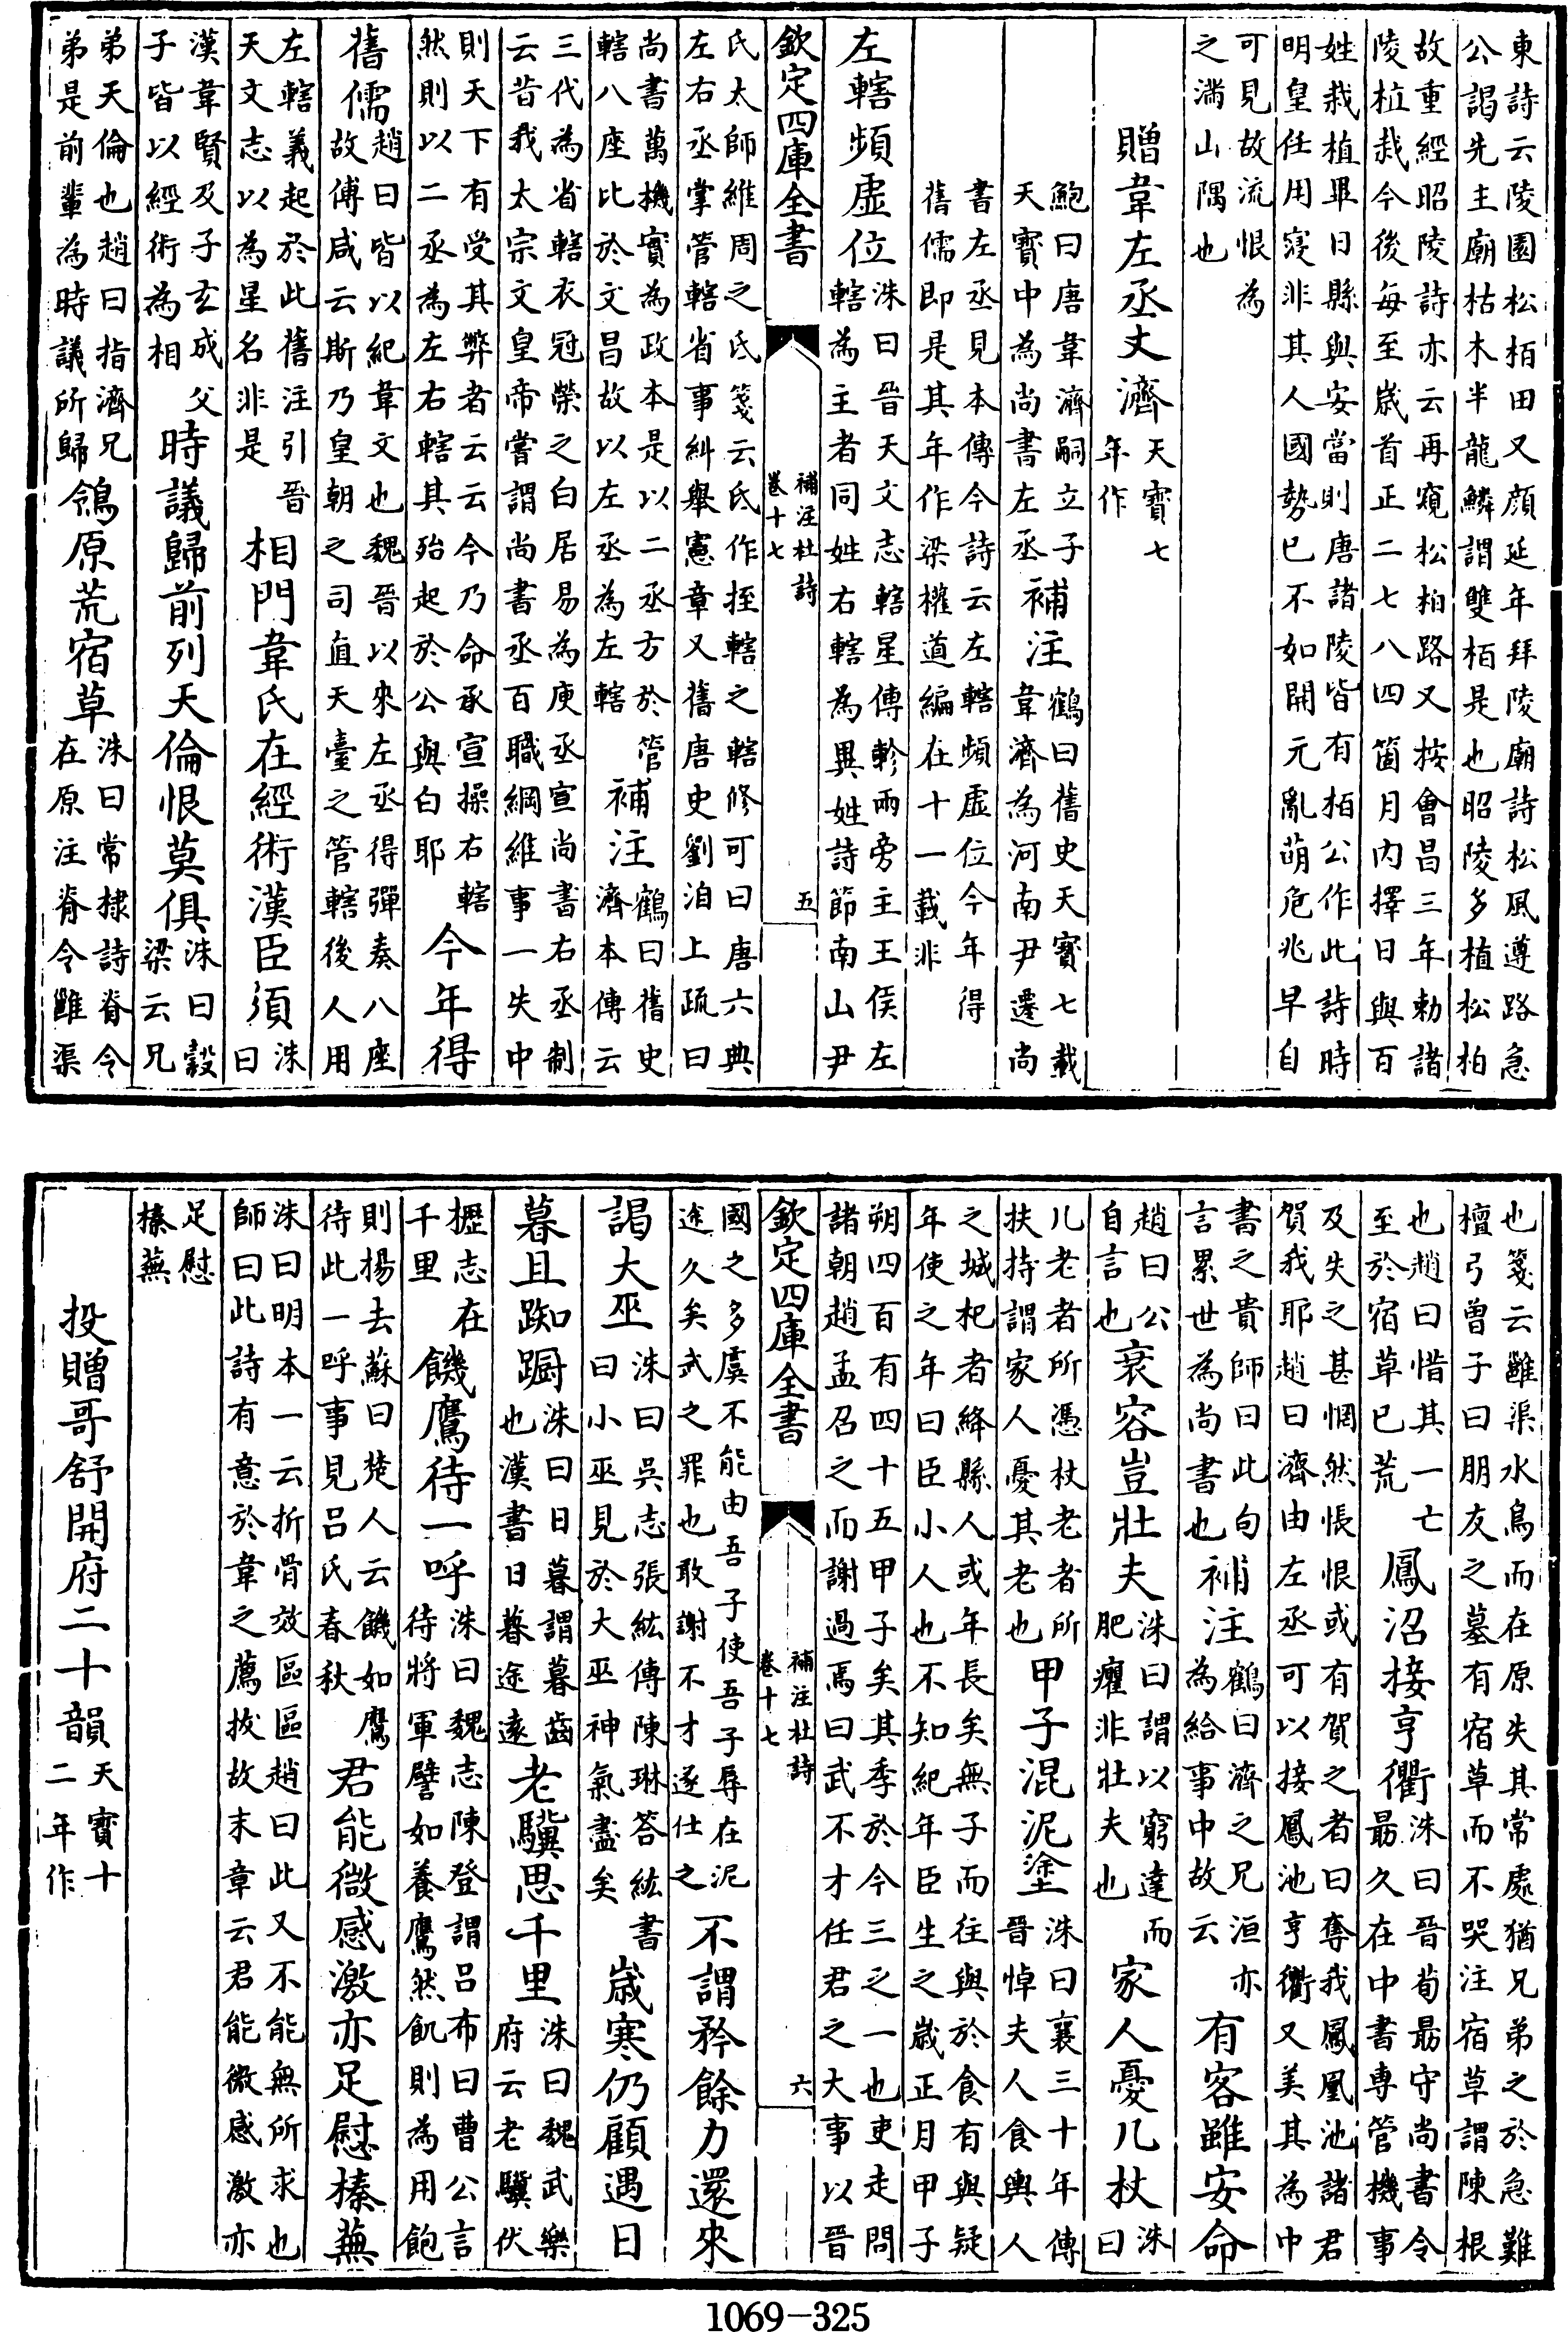 東詩云陵園松栢田又顔延年拜陵廟詩松風遵路急
公謁先主廟枯木半龍鱗謂雙栢是也昭陵多植松柏
故重經昭陵詩亦云再窺松柏路又按會昌三年勅諸
陵柏栽今後每至嵗首正二七八四箇月内擇日與百
姓栽植畢日縣與安當則唐諸陵皆有栢公作此詩時
明皇任用寖非其人國勢已不如開元亂萌危兆早自
可見故流恨為
之滿山隅也
贈韋左丞丈濟天寶七
年作
鮑曰唐韋濟嗣立子
天寶中為尚書左丞
補注
鶴曰舊史天寶七載
韋濟為河南尹遷尚
書左丞見本傳今詩云左轄頻虛位今年得
舊儒即是其年作梁權道編在十一載非
左轄頻虛位
洙曰晉天文志轄星傅軫兩旁主王侯左
轄為主者同姓右轄為異姓詩節南山尹
欽定四庫全書
補注杜詩
卷十七
五
氏太師維周之氐箋云氐作桎轄之轄修可曰唐六典
左右丞掌管轄省事糾舉憲章又舊唐史劉洎上疏曰
尚書萬機實為政本是以二丞方於管
轄八座比於文昌故以左丞為左轄
補注
鶴曰舊史
濟本傳云
三代為省轄衣冠榮之白居易為庾丞宣尚書右丞制
云昔我太宗文皇帝嘗謂尚書丞百職綱維事一失中
則天下有受其弊者云云今乃命承宣操右轄
然則以二丞為左右轄其殆起於公與白耶
今年得
舊儒
趙曰皆以紀韋文也魏晉以來左丞得彈奏八座
故傅咸云斯乃皇朝之司直天臺之管轄後人用
左轄義起於此舊注引晉
天文志以為星名非是
相門韋氏在經術漢臣須
洙
曰
漢韋賢及子玄成父
子皆以經術為相
時議歸前列天倫恨莫俱
洙曰穀
梁云兄
弟天倫也趙曰指濟兄
弟是前輩為時議所歸
鴒原荒宿草
洙曰常棣詩脊令
在原注脊令雝渠
也箋云雝渠水鳥而在原失其常處猶兄弟之於急難
檀弓曾子曰朋友之墓有宿草而不哭注宿草謂陳根
也趙曰惜其一亡
至於宿草已荒
鳳沼接亨衢
洙曰晉荀朂守尚書令
朂久在中書專管機事
及失之甚惘然悵恨或有賀之者曰奪我鳳凰池諸君
賀我耶趙曰濟由左丞可以接鳳池亨衢又美其為中
書之貴師曰此句
言累世為尚書也
補注
鶴曰濟之兄洹亦
為給事中故云
有客雖安命
趙曰公
自言也
衰容豈壯夫
洙曰謂以窮達而
肥癯非壯夫也
家人憂几杖
洙
曰
几老者所憑杖老者所
扶持謂家人憂其老也
甲子混泥塗
洙曰襄三十年傳
晉悼夫人食輿人
之城杞者絳縣人或年長矣無子而往與於食有與疑
年使之年曰臣小人也不知紀年臣生之嵗正月甲子
朔四百有四十五甲子矣其季於今三之一也吏走問
諸朝趙孟召之而謝過焉曰武不才任君之大事以晉
欽定四庫全書
補注杜詩
卷十七
六
國之多虞不能由吾子使吾子辱在泥
塗久矣武之罪也敢謝不才遂仕之
不謂矜餘力還來
謁大巫
洙曰吳志張紘傳陳琳答紘書
曰小巫見於大巫神氣盡矣
嵗寒仍顧遇日
暮且踟蹰
洙曰日暮謂暮齒
也漢書日暮途遠
老驥思千里
洙曰魏武樂
府云老驥伏
櫪志在
千里
饑鷹待一呼
洙曰魏志陳登謂呂布曰曹公言
待將軍譬如養鷹然飢則為用飽
則揚去蘇曰楚人云饑如鷹
待此一呼事見呂氏春秋
君能微感激亦足慰榛蕪
洙曰明本一云折骨效區區趙曰此又不能無所求也
師曰此詩有意於韋之薦拔故末章云君能微感激亦
足慰
榛蕪
投贈哥舒開府二十韻天寶十
二年作
1069-325